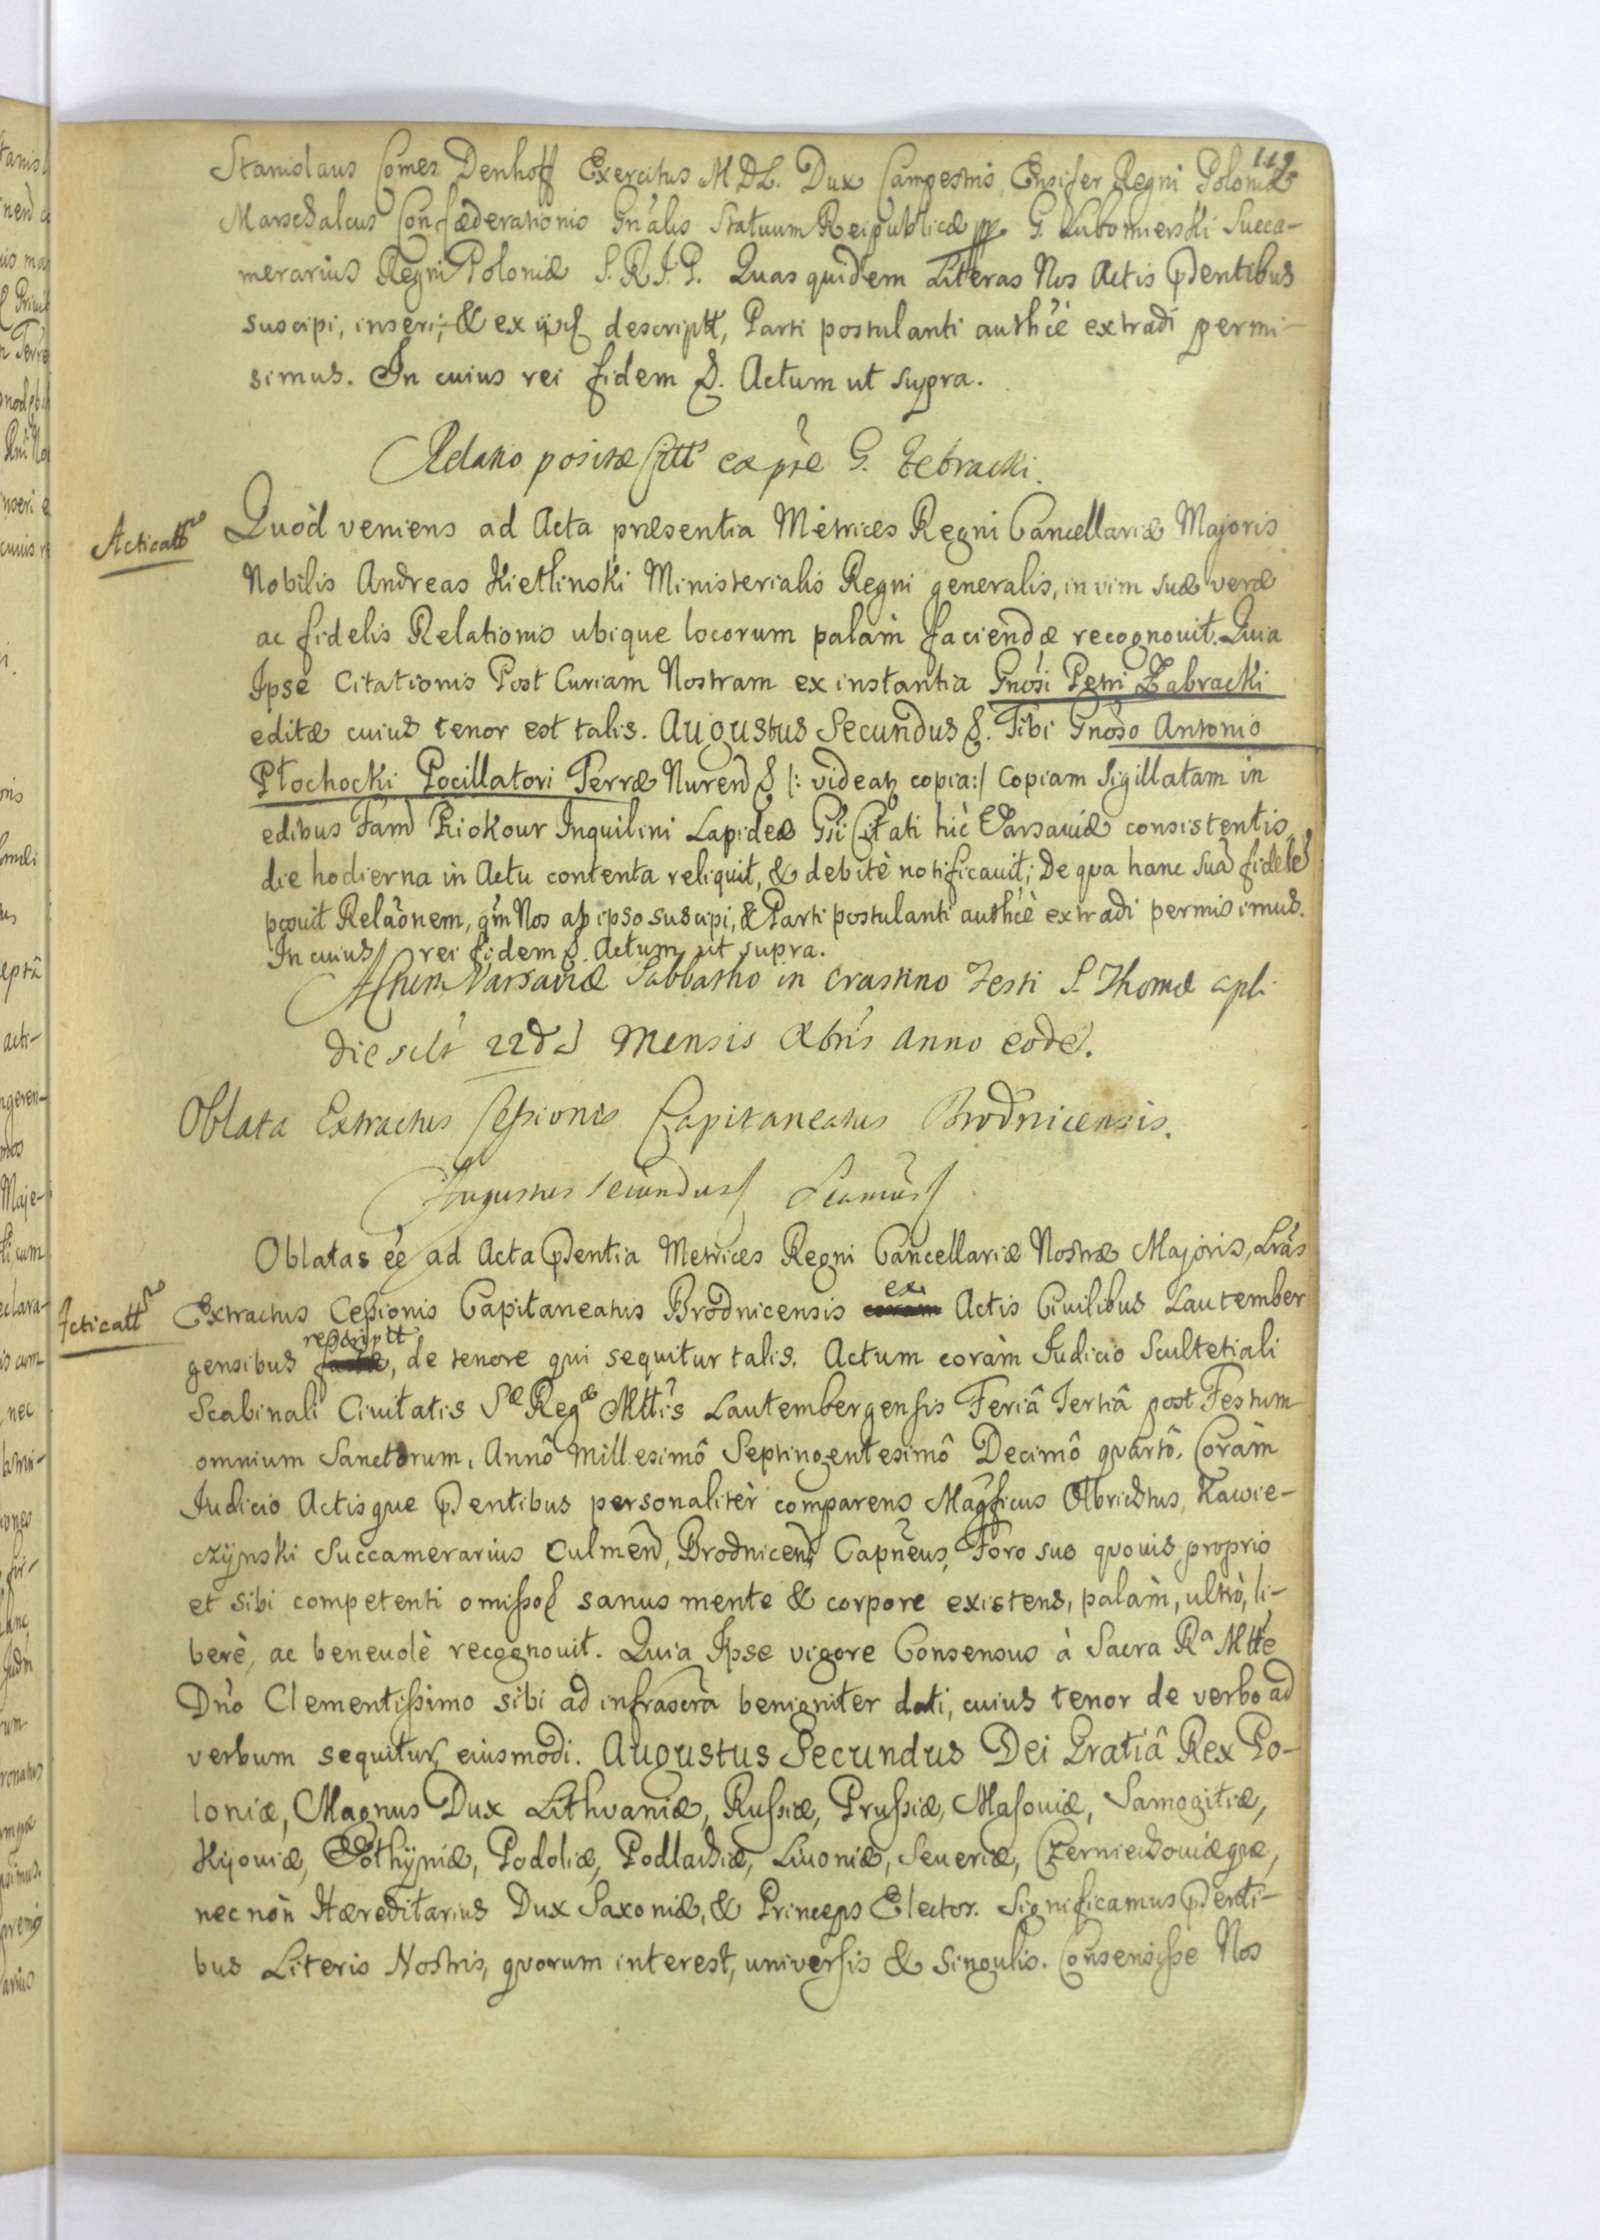 119
Stanislaus Comes Denhoff Exercitus M D L. Dux Campestris, Ensifer Regni Poloniæ
Marschalcus Confæderationis Gn'alis Statuum Reipublicæ G. Lubomierski Succa-
merarius Regni Poloniæ S. R. I. P. Quas quidem Literas Nos Actis pdentibus
suscipi, inseri, & ex ijs descriptt, Parti postulanti authcè extradi permi-
simus. In cuius rei fidem &. Actum ut supra.
Relatio positæ Citt's ex pte G. Zebracki.
Acticatt
Quòd veniens ad Acta præsentia Metrices Regni Cancellariæ Majoris
Nobilis Andreas Kietlinski Ministerialis Regni generalis, in vim suæ veræ
ac fidelis Relationis ubique locorum palàm faciendæ recognouit. Quia
Ipse Citationis Post Curiam Nostram ex instantia Gnosi Petri Zabracki
editæ cuius tenor est talis. Augustus Secundus &. Tibi Gnoso Antonio
Płochocki Pocillatori Terræ Nuren & /: videatz copia:/ Copiam Sigillatam in
edibus Fam Riokour Inquilini Lapideæ Gsi Citati hic Varsaviæ consistentis
die hodierna in Actu contenta reliquit, & debitè notificauit; De qua hanc suã fidele
posuit Relãonem, qm Nos ab ipso suscipi, & Parti postulanti authcè extradi permisimus.
In cuius rei fidem &. Actum ut supra.
Actum Varsaviæ Sabbatho in crastino Festi S. Thomæ apli
die scilt 22da Mensis Xbris anno eode.
Oblata Extractus Cessionis Capitaneatus Brodnicensis.
Augustus Secundus Scamus
Oblatas eê ad Acta pdentia Metrices Regni Cancellariæ Nostræ Majoris, Lrás
Acticatt
Extractus Cessionis Capitaneatus Brodnicensis coram ex Actis Civilibus Lautember
gensibus rescriptt, de tenore qui sequitur talis. Actum coràm Judicio Scultetiali
Scabinali Civitatis Sæ Regæ Mttis Lautembergensis Feriâ Tertiâ post Festum
omnium Sanctorum, Annô Millesimô Septingentesimô Decimô quartô. Coràm
Judicio Actisque pdentibus personalitèr comparens Magficus Olbrichtus Kawie-
czÿnski Succamerarius Culmen, Brodnicens Capneus, Foro suo quouis proprio
et sibi competenti omisso sanus mente & corpore existens, palàm, ultrò, li-
berè, ac beneuolè recognouit. Quia Ipse vigore Consensus à Sacra Ra Mtte
Dno Clementissimo sibi ad infrascra benigniter dati, cuius tenor de verbo ad
verbum sequitur, eiusmodi. Augustus Secundus Dei Gratiâ Rex Po-
loniæ, Magnus Dux Lithvaniæ, Russiæ, Prussiæ, Masouiæ, Samogitiæ,
Kijouiæ, Volhÿniæ, Podoliæ, Podlachiæ, Livoniæ, Seueriæ, Czerniechouiæque,
necnòn Hæreditarius Dux Saxoniæ, & Princeps Elector. Significamus pdenti-
bus Literis Nostris, quorum interest, universis & Singulis. Consensisse Nos